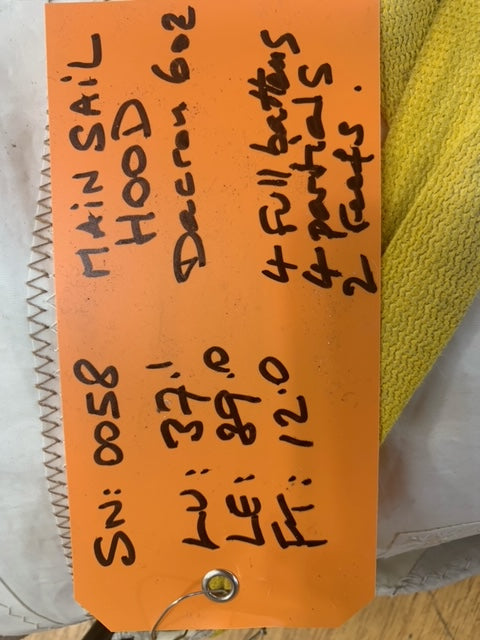 MAIN SAIL
HOOD
Dacron 6oz
SN: 0058
LU: 37.1
LE: 89.0
FT: 12.0
4 Full battens
4 partials
2 reefs.